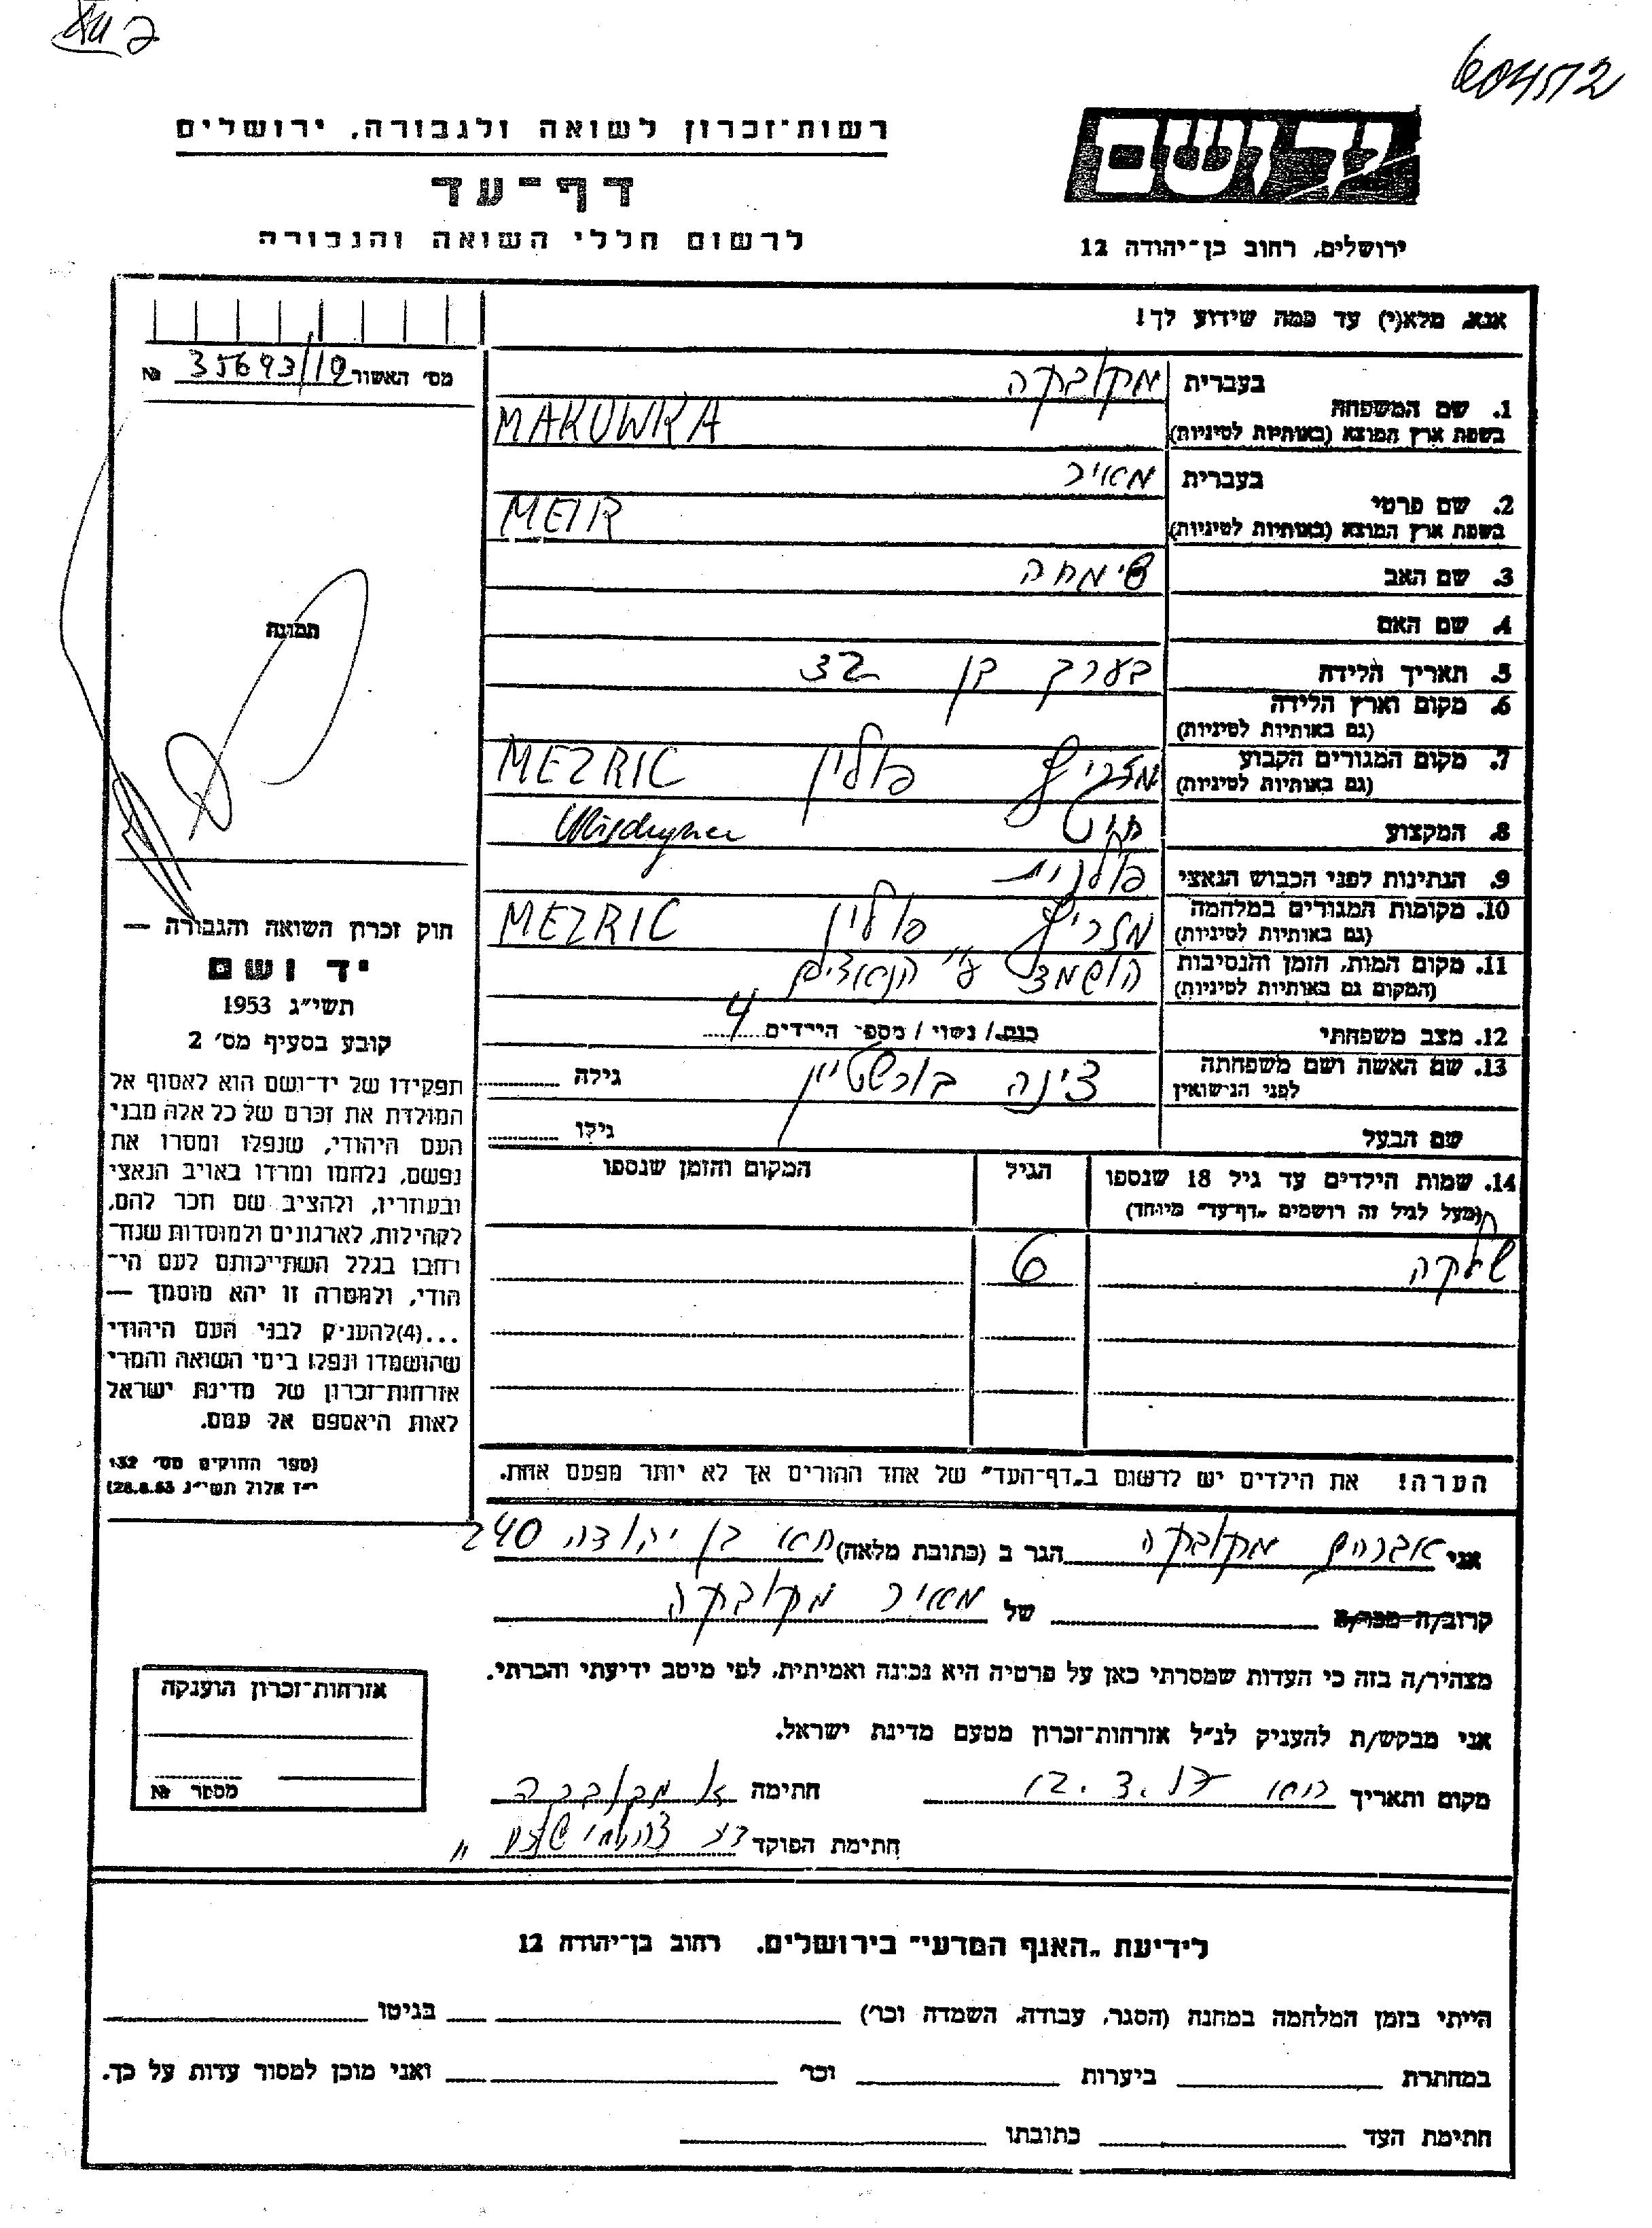 604572
יד ושם
רשות-זכרון לשואה ולגבורה, ירושלים
דף-עד
לרשום חללי השואה והגבורה
ירושלים, רחוב בן-יהודה 12
אנא, מלא(י) עד כמה שידוע לך!
מס' האשור 35693/19 №
1. שם המשפחה
בעברית מקובקה
בשפת ארץ המוצא (באותיות לטיניות) MAKUWKA
2. שם פרטי
בעברית מאיר
בשפת ארץ המוצא (באותיות לטיניות) MEIR
3. שם האב שימחה
4. שם האם
5. תאריך הלידה בערך בן 32
6. מקום וארץ הלידה
(גם באותיות לטיניות)
7. מקום המגורים הקבוע מזריץ פולין MEZRIC
(גם באותיות לטיניות)
8. המקצוע חייט
9. הנתינות לפני הכבוש הנאצי פולנית
10. מקומות המגורים במלחמה מזריץ פולין MEZRIC
(גם באותיות לטיניות)
11. מקום המות, הזמן והנסיבות הושמד ע"י הנאצים
(המקום גם באותיות לטיניות)
12. מצב משפחתי רווק / נשוי / מספר הילדים 4
13. שם האשה ושם משפחתה צינה בורשטיין גילה
לפני הנישואין
שם הבעל גילו
14. שמות הילדים עד גיל 18 שנספו הגיל המקום והזמן שנספו
(מעל לגיל זה רושמים "דף-עד" מיוחד)
6
הערה! את הילדים יש לרשום ב"דף-העד" של אחד ההורים אך לא יותר מפעם אחת.
תמונה
חוק זכרון השואה והגבורה —
יד ושם
תשי"ג 1953
קובע בסעיף מס' 2
תפקידו של יד-ושם הוא לאסוף אל
המולדת את זכרם של כל אלה מבני
העם היהודי, שנפלו ומסרו את
נפשם, נלחמו ומרדו באויב הנאצי
ובעוזריו, ולהציב שם וזכר להם,
לקהילות, לארגונים ולמוסדות שנח-
רבו בגלל השתייכותם לעם הי-
הודי, ולמטרה זו יהא מוסמך —
...(4)להעניק לבני העם היהודי
שהושמדו ונפלו בימי השואה והמרי
אזרחות-זכרון של מדינת ישראל
לאות היאספם אל עמם.
(ספר החוקים מס' 132
י"ז אלול תשי"ג 28.8.53)
אני אברהם מקובקה הגר ב (כתובת מלאה) ת"א בן יהודה 240
קרוב/ה מכר/ה של מאיר מקובקה
מצהיר/ה בזה כי העדות שמסרתי כאן על פרטיה היא נכונה ואמיתית, לפי מיטב ידיעתי והכרתי.
אני מבקש/ת להעניק לנ"ל אזרחות-זכרון מטעם מדינת ישראל.
מקום ותאריך 12.3.57 חתימה א. מקובקה
חתימת הפוקד
אזרחות-זכרון הוענקה
מספר №
לידיעת "האגף המדעי" בירושלים. רחוב בן-יהודה 12
הייתי בזמן המלחמה במחנה (הסגר, עבודה, השמדה וכו') בגיטו
במחתרת ביערות וכו' ואני מוכן למסור עדות על כך.
חתימת העד כתובתו